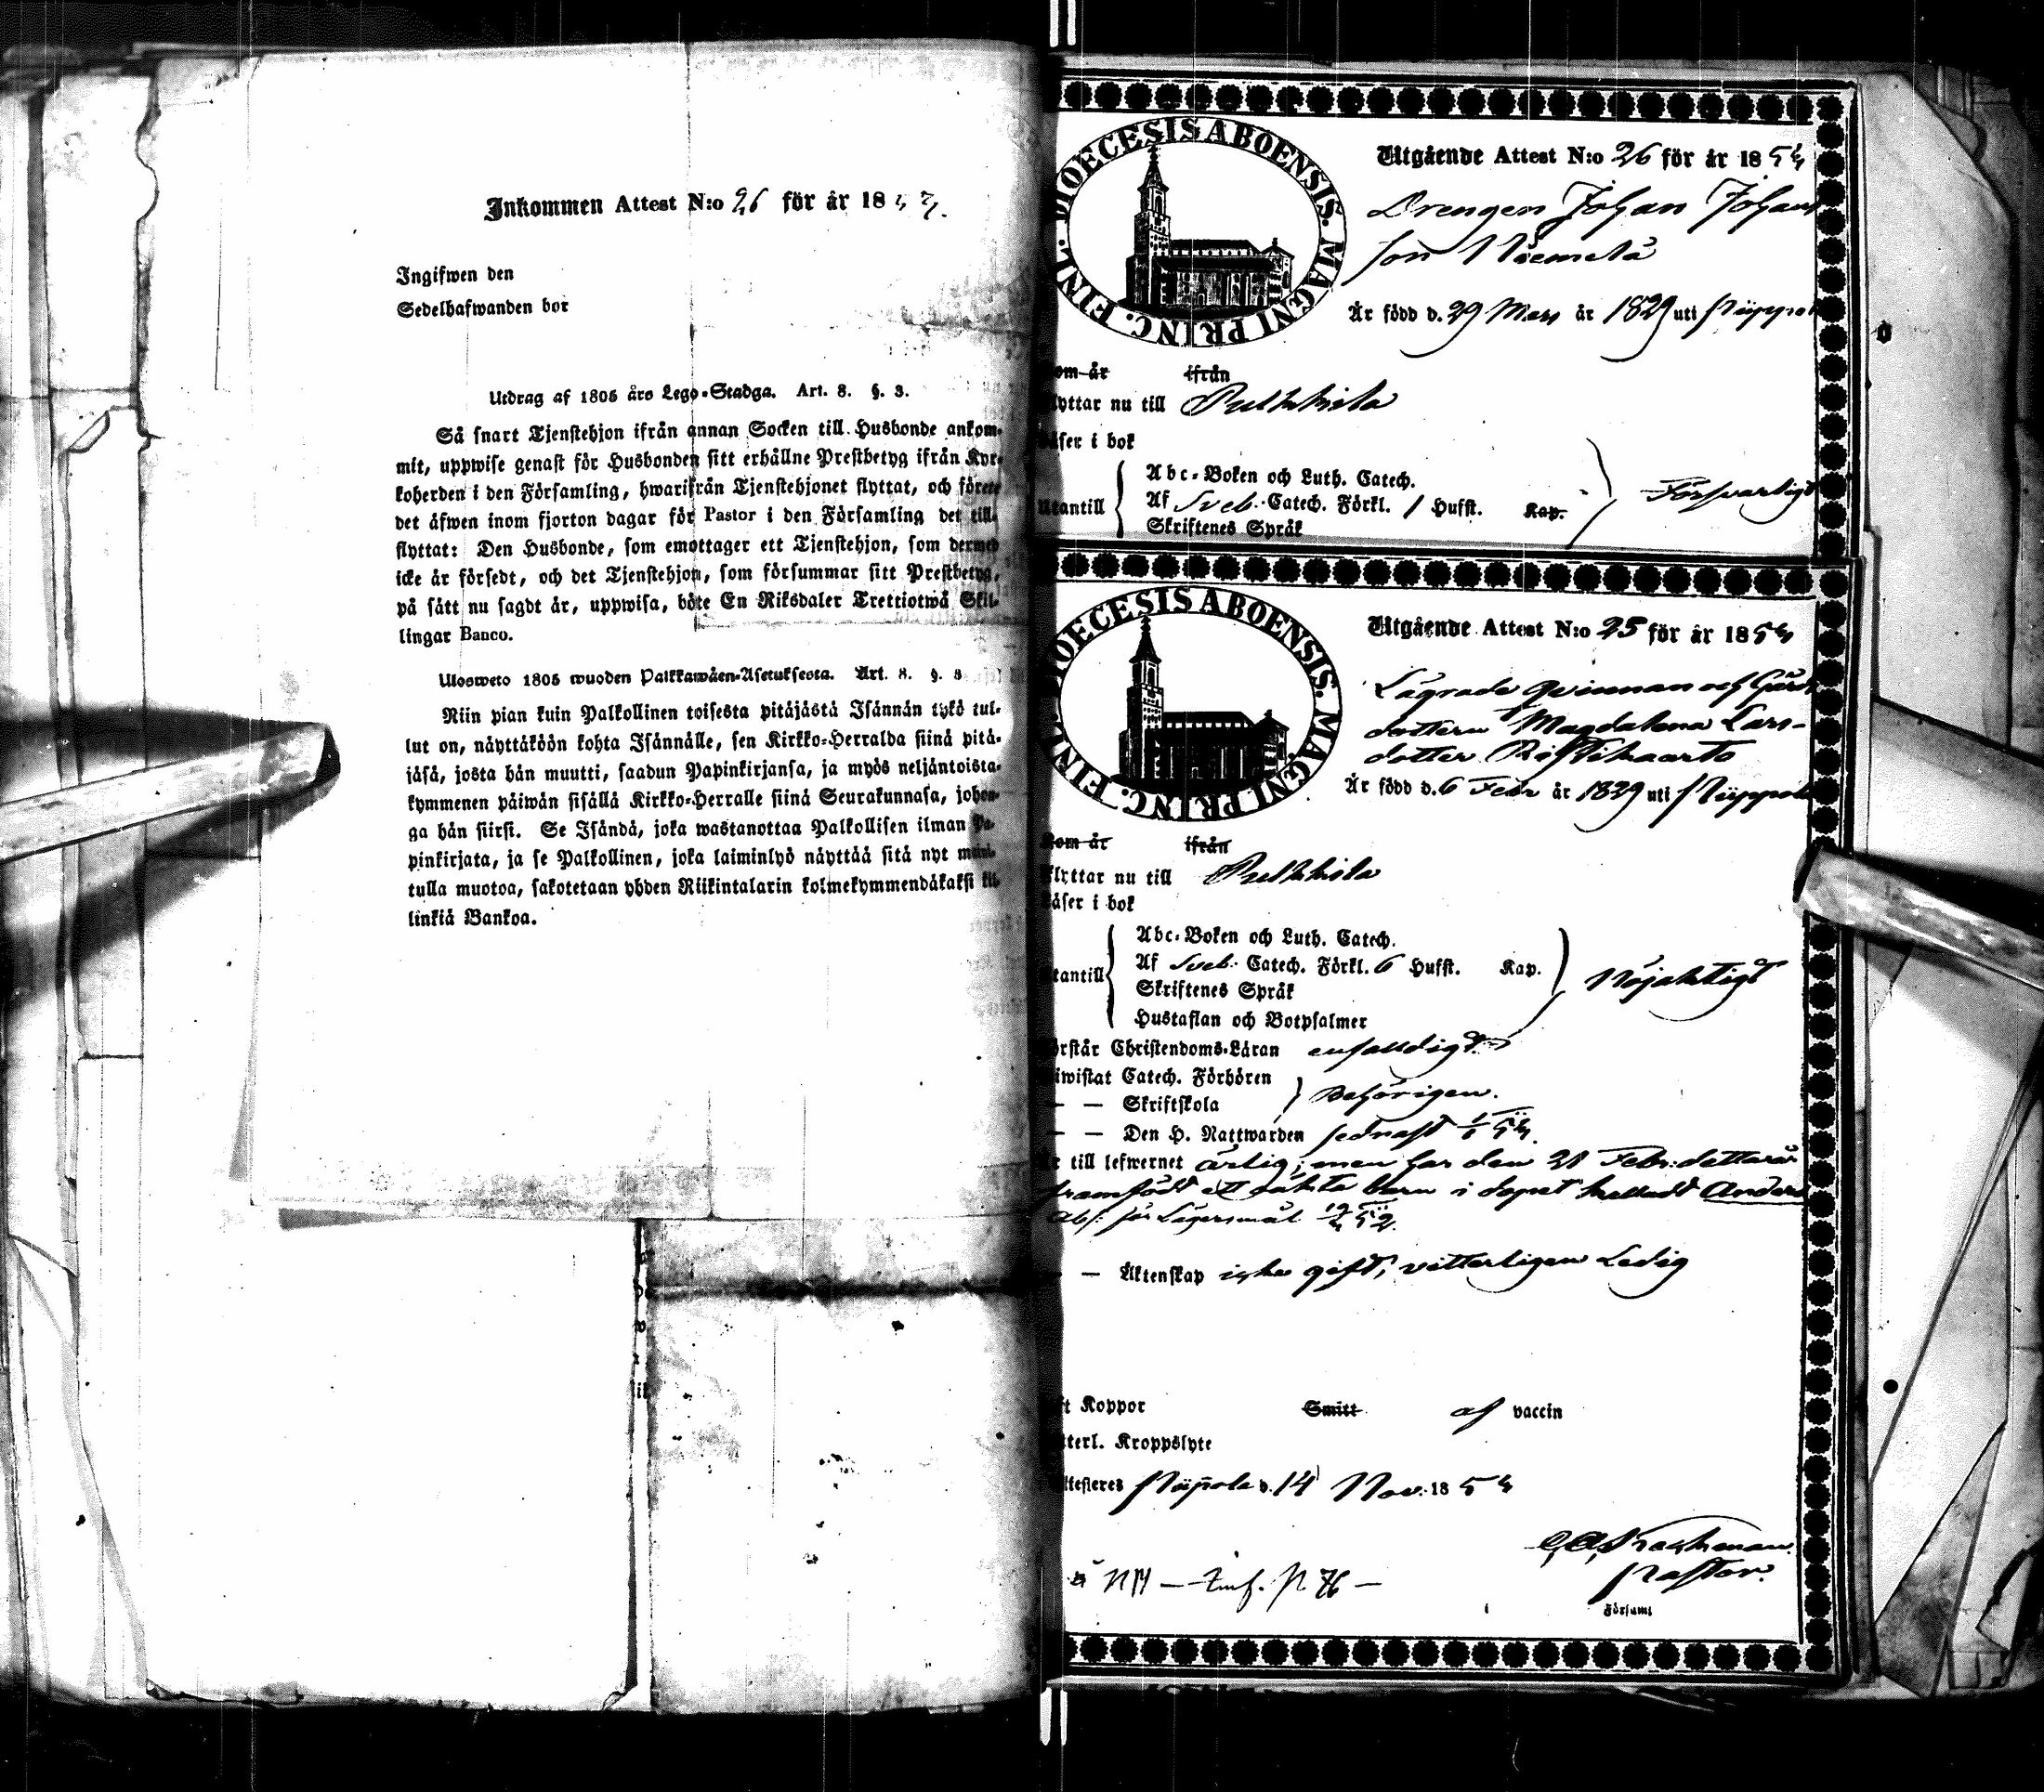 Inkommen Attest N:o 26 för år 18
Ingifwen den
Sedelhafwanden bor
Utdrag af 1805 års Lego-Stadga. Art. 8. §. 3.
Så snart Tjenstehjon ifrån annan Socken till Husbonde ankom-
mit, uppwise genast för Husbonden sitt erhållne Prestbetyg ifrån Kyr-
koherden i den Församling, hwarifrån Tjenstehjonet flyttat, och förete
det äfwen inom fjorton dagar för Pastor i den Församling det till-
flyttat: Den Husbonde, som emottager ett Tjenstehjon, som dermed
icke är försedt, och det Tjenstehjon, som försummar sitt Prestbetyg,
på sätt nu sagdt är, uppwisa, böte En Riksdaler Trettiotwå Skil-
lingar Banco.
Ulosweto 1805 wuoden Palkkawäen-Asetuksesta. Art. 8. §. 3
Niin pian kuin Palkollinen toisesta pitäjästä Isännän tykö tul-
lut on, näyttäköön kohta Isännälle, sen Kirkko-Herralda siinä pitä-
jäsä, josta hän muutti, saadun Papinkirjansa, ja myös neljäntoista-
kymmenen päiwän sisällä Kirkko-Herralle siinä Seurakunnasa, johon-
ga hän siirsi. Se Isändä, joka wastanottaa Palkollisen ilman Pa-
pinkirjata, ja se Palkollinen, joka laiminlyö näyttää sitä nyt maini-
tulla muotoa, sakotetaan yhden Riikintalarin kolmekymmendäkaksi kil-
linkiä Bankoa.
DIOECESIS ABOENSIS. MAGNI PRINC. FINL.
Utgående Attest N:o 26 för år 1854
Drengen Johan Johans
son Näemelä
Är född d. 29 Mars år 1829 uti Nijppola
om år ifrån
lyttar nu till Pulkkila
äser i bok
Utantill
Abc-Boken och Luth. Catech.
Af Sveb. Catech. Förkl. / Hufst. Kap.
Skriftenes Språk
Försvarligt
DIOECESIS ABOENSIS. MAGNI PRINC. FINL.
Utgående Attest N:o 25 för år 1854
Lägrade Qvinnan och Gårds
dottern Magdalena Lars-
dotter Ristikaarto
Är född d. 6 Febr år 1829 uti Nijppola
Kom år ifrån
Flyttar nu till Pulkkila
Läser i bok
tantill
Abc-Boken och Luth. Catech.
Af Sveb. Catech. Förkl. 6 Hufst. Kap.
Skriftenes Språk
Hustaflan och Botpsalmer
Nöjaktigt
örstår Christendoms-Läran enfaldigt
iwistat Catech. Förhören
— — Skriftskola
Behörigen.
— — Den H. Nattwarden sednast 1/1 54.
r till lefwernet ärlig; men har den 21 Febr: detta år
framfödt ett oäkta barn i dopet kalladt Anders
Abs: för Lägersmål 19/4 52.
— Äktenskap icke gift, vitterligen Ledig
ft Koppor Smitt af vaccin
tterl. Kroppslyte
ttesteres d. 14 Nov. 1854
Pastor.
Församl